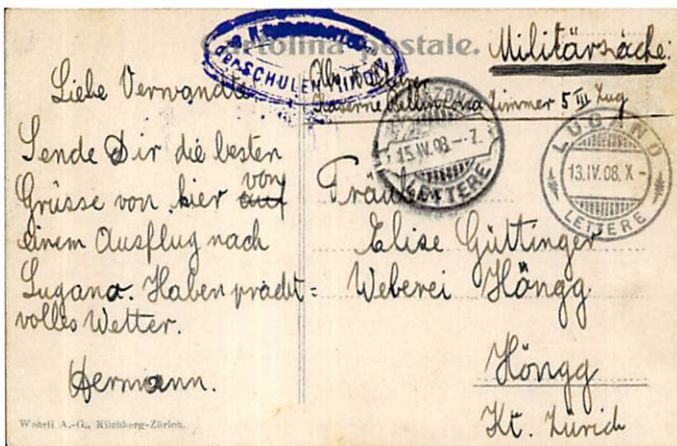 Cartolina postale.
Militärsache:
der SCHULEN
Kaserne Bellinzona Zimmer 5 III Zug
LETTERE
15.IV.08.–Z.
LUGANO
13.IV.08.X–
LETTERE
Liebe Verwandte
Sende Dir die besten
Grüsse von hier auf von
einem Ausflug nach
Lugano. Haben pracht=
volles Wetter.
Hermann.
Fräulein
Elise Güttinger
Weberei Höngg
Höngg
Kt. Zürich
Wehrli A.-G., Kilchberg-Zürich.